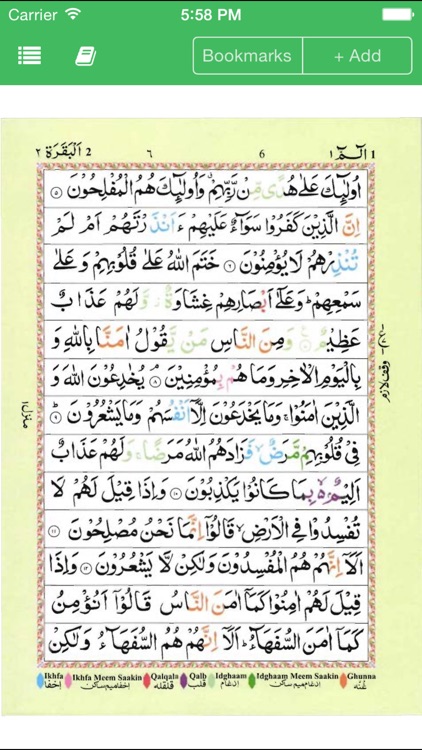 Carrier 5:58 PM
Bookmarks + Add
2 اَلْبَقَرَة ٢ ٦ 6 الٓمّٓ ١ 1
اُولٰٓئِكَ عَلٰى هُدًى مِّنْ رَّبِّهِمْ ۙ وَاُولٰٓئِكَ هُمُ الْمُفْلِحُوْنَ ۝۵
اِنَّ الَّذِيْنَ كَفَرُوْا سَوَآءٌ عَلَيْهِمْ ءَاَنْذَرْتَهُمْ اَمْ لَمْ
تُنْذِرْهُمْ لَا يُؤْمِنُوْنَ ۝۶ خَتَمَ اللّٰهُ عَلٰى قُلُوْبِهِمْ وَعَلٰى
سَمْعِهِمْ ؕ وَعَلٰٓى اَبْصَارِهِمْ غِشَاوَةٌ ؗ وَّلَهُمْ عَذَابٌ
عَظِيْمٌ ۝۷ وَمِنَ النَّاسِ مَنْ يَّقُوْلُ اٰمَنَّا بِاللّٰهِ وَ
بِالْيَوْمِ الْاٰخِرِ وَمَا هُمْ بِمُؤْمِنِيْنَ ۝۸ يُخٰدِعُوْنَ اللّٰهَ وَ
الَّذِيْنَ اٰمَنُوْا ۚ وَمَا يَخْدَعُوْنَ اِلَّاۤ اَنْفُسَهُمْ وَمَا يَشْعُرُوْنَ ۝۹
فِيْ قُلُوْبِهِمْ مَّرَضٌ ۙ فَزَادَهُمُ اللّٰهُ مَرَضًا ۚ وَلَهُمْ عَذَابٌ
اَلِيْمٌۢ ۙ۬ بِمَا كَانُوْا يَكْذِبُوْنَ ۝۱۰ وَاِذَا قِيْلَ لَهُمْ لَا
تُفْسِدُوْا فِي الْاَرْضِ ۙ قَالُوْۤا اِنَّمَا نَحْنُ مُصْلِحُوْنَ ۝۱۱
اَلَاۤ اِنَّهُمْ هُمُ الْمُفْسِدُوْنَ وَلٰكِنْ لَّا يَشْعُرُوْنَ ۝۱۲ وَاِذَا
قِيْلَ لَهُمْ اٰمِنُوْا كَمَاۤ اٰمَنَ النَّاسُ قَالُوْۤا اَنُؤْمِنُ
كَمَاۤ اٰمَنَ السُّفَهَآءُ ؕ اَلَاۤ اِنَّهُمْ هُمُ السُّفَهَآءُ وَلٰكِنْ
وقف لازم
منزل ١
Ikhfa Ikhfa Meem Saakin Qalqala Qalb Idghaam Idghaam Meem Saakin Ghunna
اِخفَا اِخفامیم ساکن قلقلہ قلب ادغام ادغام میم ساکن غُنّہ